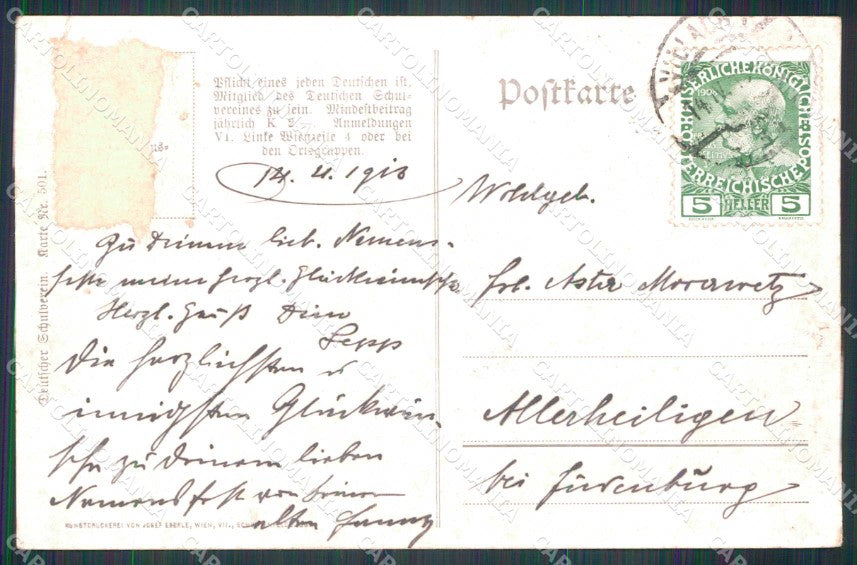 Pflicht eines jeden Deutschen ist,
Mitglied des Deutschen Schul-
vereines zu sein. Mindestbeitrag
jährlich K 2·–. Anmeldungen
VI. Linke Wienzeile 4 oder bei
den Ortsgruppen.
Postkarte
Deutscher Schulverein. Karte Nr. 501.
KAISERLICHE KÖNIGLICHE
ÖSTERREICHISCHE POST
5 HELLER 5
14. 4. 1913
Wohlgeb.
Zu Deinem lieb. Namens-
feste meine herzl. Glückwünsche
Herzl. Gruß Dein
Sepp
Die herzlichsten u
innigsten Glückwün-
sche zu Deinem lieben
Namensfest von Deiner
alten Fanny
Frl. Morawetz
Allerheiligen
bei
KUNSTDRUCKEREI VON JOSEF EBERLE, WIEN, VII.,
CARTOLINOMANIA